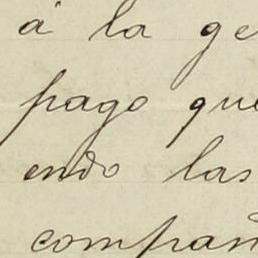 á la ge
pago que
endo las
compañ